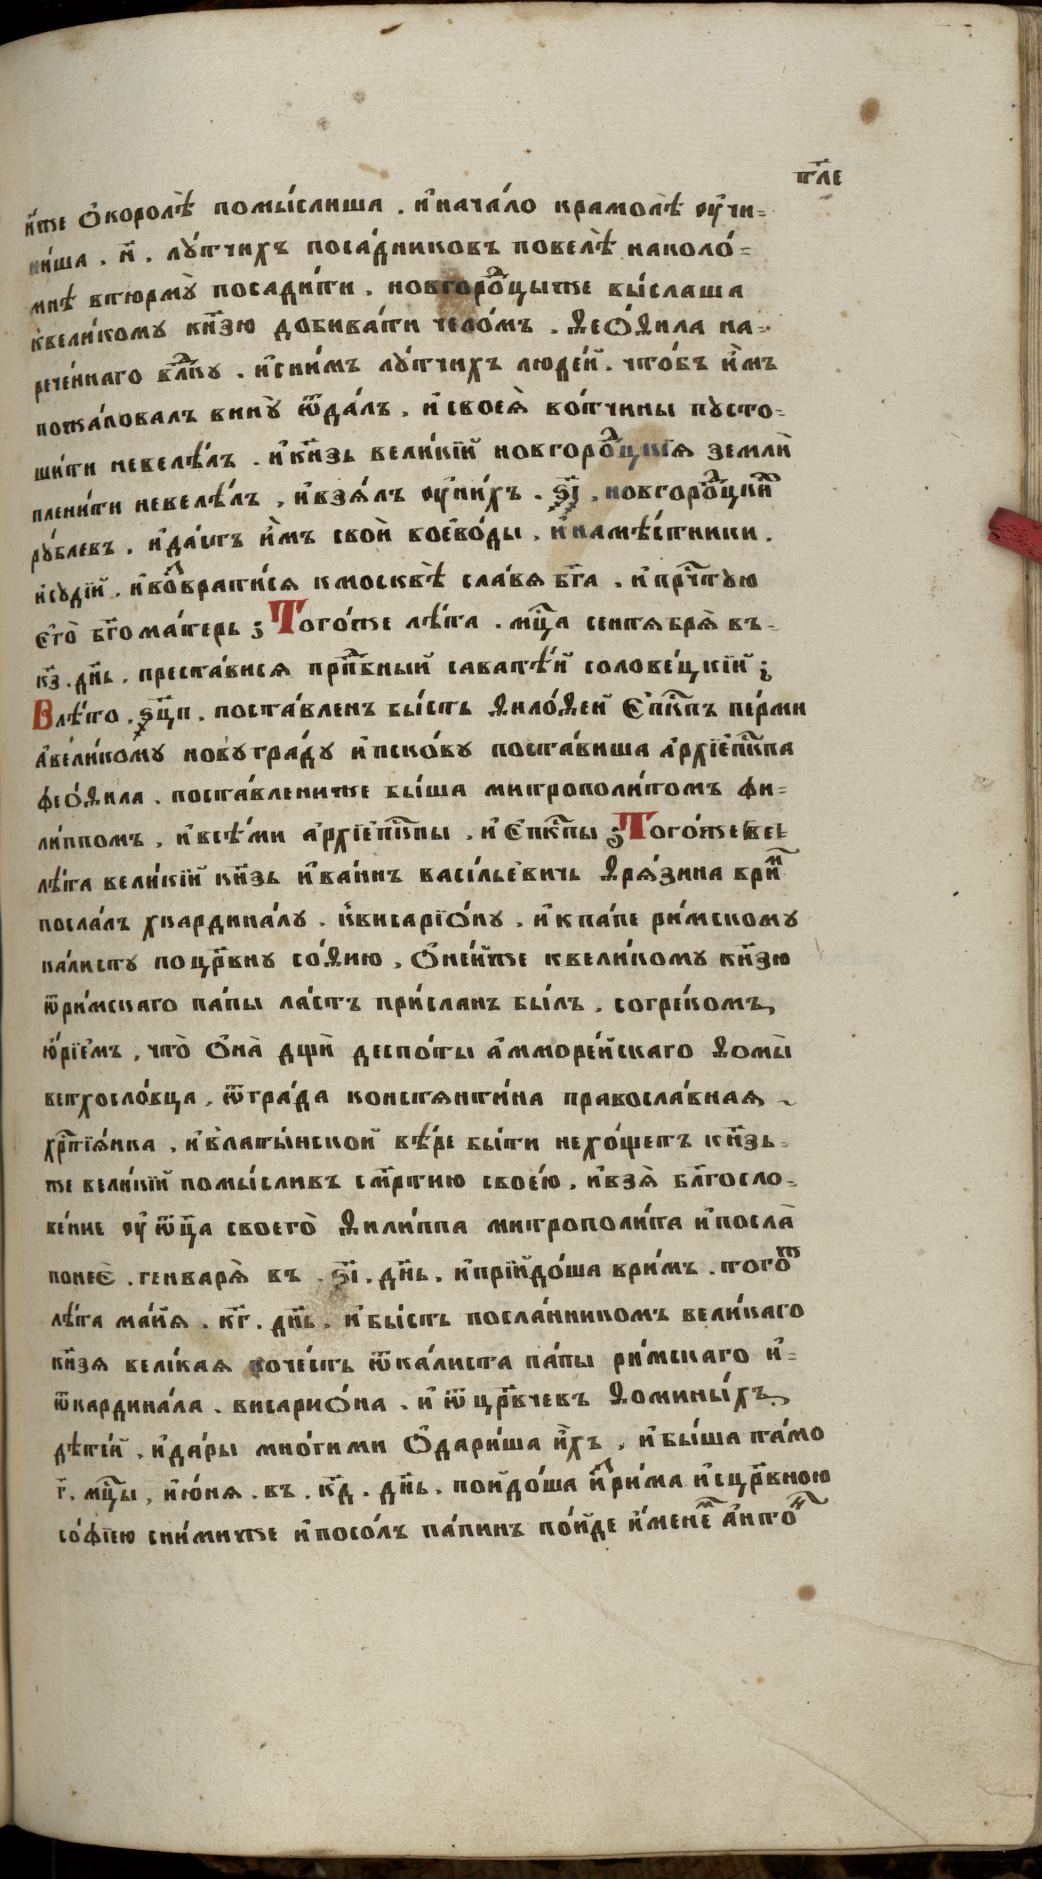 тл҃е
и́же ѻ҆королѣ̀ помы́слиша . и҆нача́ло крамолѣ̀ ѹ҆чи-
ни́ша . и҃ . лу́тчихъ поса́дниковъ повелѣ̀ наколо́-
мнѣ втюрму̀ посади́ти . новгоро́дцыже вы́слаша
квели́кому кн҃зю добива́ти чело́мъ . ѳеѻ́ѳила на-
рече́ннаго влⷣку . и҆сни́мъ лу́тчихъ люде́й . что́бъ и҆̀мъ
пожа́ловалъ вину̀ ѿда́лъ . и҆своея̀ во́тчины пусто-
ши́ти невелѣ́лъ . и҆кн҃зь вели́кїй новгоро́дцкїя землѝ
плени́ти невелѣ́лъ , и҆взя́лъ ѹ҆ни́хъ . ѕ҃і , новгоро́дцкиⷯ
ру́блевъ . и҆да́етъ и҆̀мъ свои̾ воево́ды . и҆намѣ́стники .
и҆судїй . и҆воⷥврати́ся кмосквѣ̀ славя бг҃а . и҆прⷱ҇тую
є҆го̀ бг҃ома́терь ; Того́же лѣ́та . мцⷭ҇а сентября̀ въ-
кз҃ . дн҃ь . преста́вися прпⷣбный савате́й солове́цкїй ;
Влѣ́то . ѕ҂цп҃ . поста́вленъ бы́сть ѳило́ѳей є҆пⷭ҇кпъ пе́рми
а҆вели́кому новугра́ду и҆пско́ву поста́виша а҆рхїє҆пⷭ҇кпа
феѻ́ѳила . поста́вленнже бы́ша митрополи́томъ фи-
ли́ппомъ , и҆всѣ́ми а҆рхїє҆пⷭ҇кпы , и҆є҆пⷭ҇кпы ; Того́же
лѣ́та вели́кїй кн҃зь и҆ва́ннъ васі́льевичь ѳря́зина вриⷨ
посла́лъ хкардина́лу . квисарїѻ́ну . и҆кпа́пе ри́мскому
ка́листу поцрⷭ҇вну со́ѳию , ѻ҆не́йже квели́кому кн҃зю
ѿри́мскаго па́пы ла́стъ при́сланъ бы́лъ . согре́комъ
ю́рїемъ , что̀ ѻ҆на̀ дщѝ деспо́ты а҆мморе́йскаго ѳомы̀
ветхосло́вца , ѿгра́да констянти́на правосла́вная
хрⷭ҇тїя́нка . и҆влаты́нской вѣ́ре бы́ти нехо́щетъ кн҃зь-
же вели́кїй помы́сливъ съма́тртию свое́ю . и҆взя̀ бл҃госло-
ве́ние ѹ҆ѿц҃а своего̀ ѳили́ппа митрополи́та и҆посла̀
понеє̀ . генваря̀ въ . ѕ҃і . дн҃ь . и҆прїйдо́ша врим̾ъ . тогоⷤ
лѣ́та ма́йя . кг҃ . дн҃ь . и҆бы́сть посла́нникомъ вели́каго
кн҃зя вели́кая по́честь ѿка́листа па́пы ри́мскаго и҆-
ѿкардина́ла . висариѻ́на . и҆ѿцрⷭ҇вчевъ ѳомины́хъ
дѣте́й . и҆да́ры мно́гими ѻ҆дари́ша и҆̀хъ . и҆бы́ша та́мо
г҃ . мцⷭ҇ы , и҆ю́ня . въ . кд҃ . дн҃ь . пойдо́ша и҆зⷥри́ма и҆сцрⷭ҇вною
со́фїею сни́миже и҆посо́лъ па́пинъ по́йде и҆менеⷨ а҆нтоⷩ